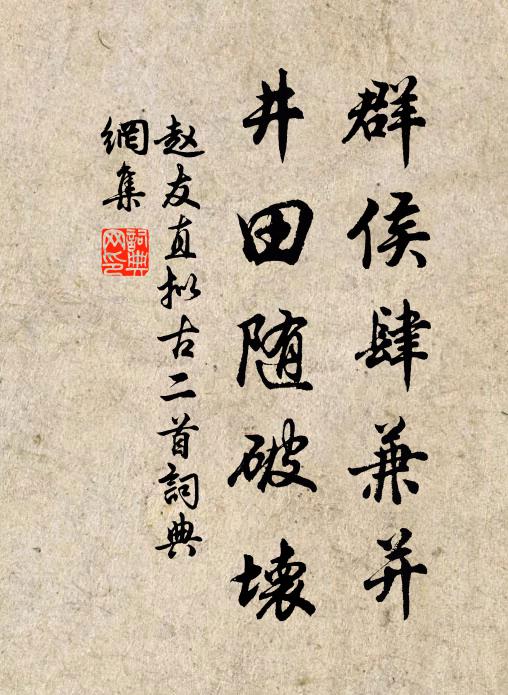 群侯肆兼并
井田随破壊
赵友直拟古二首詞典
網集
詞典网印